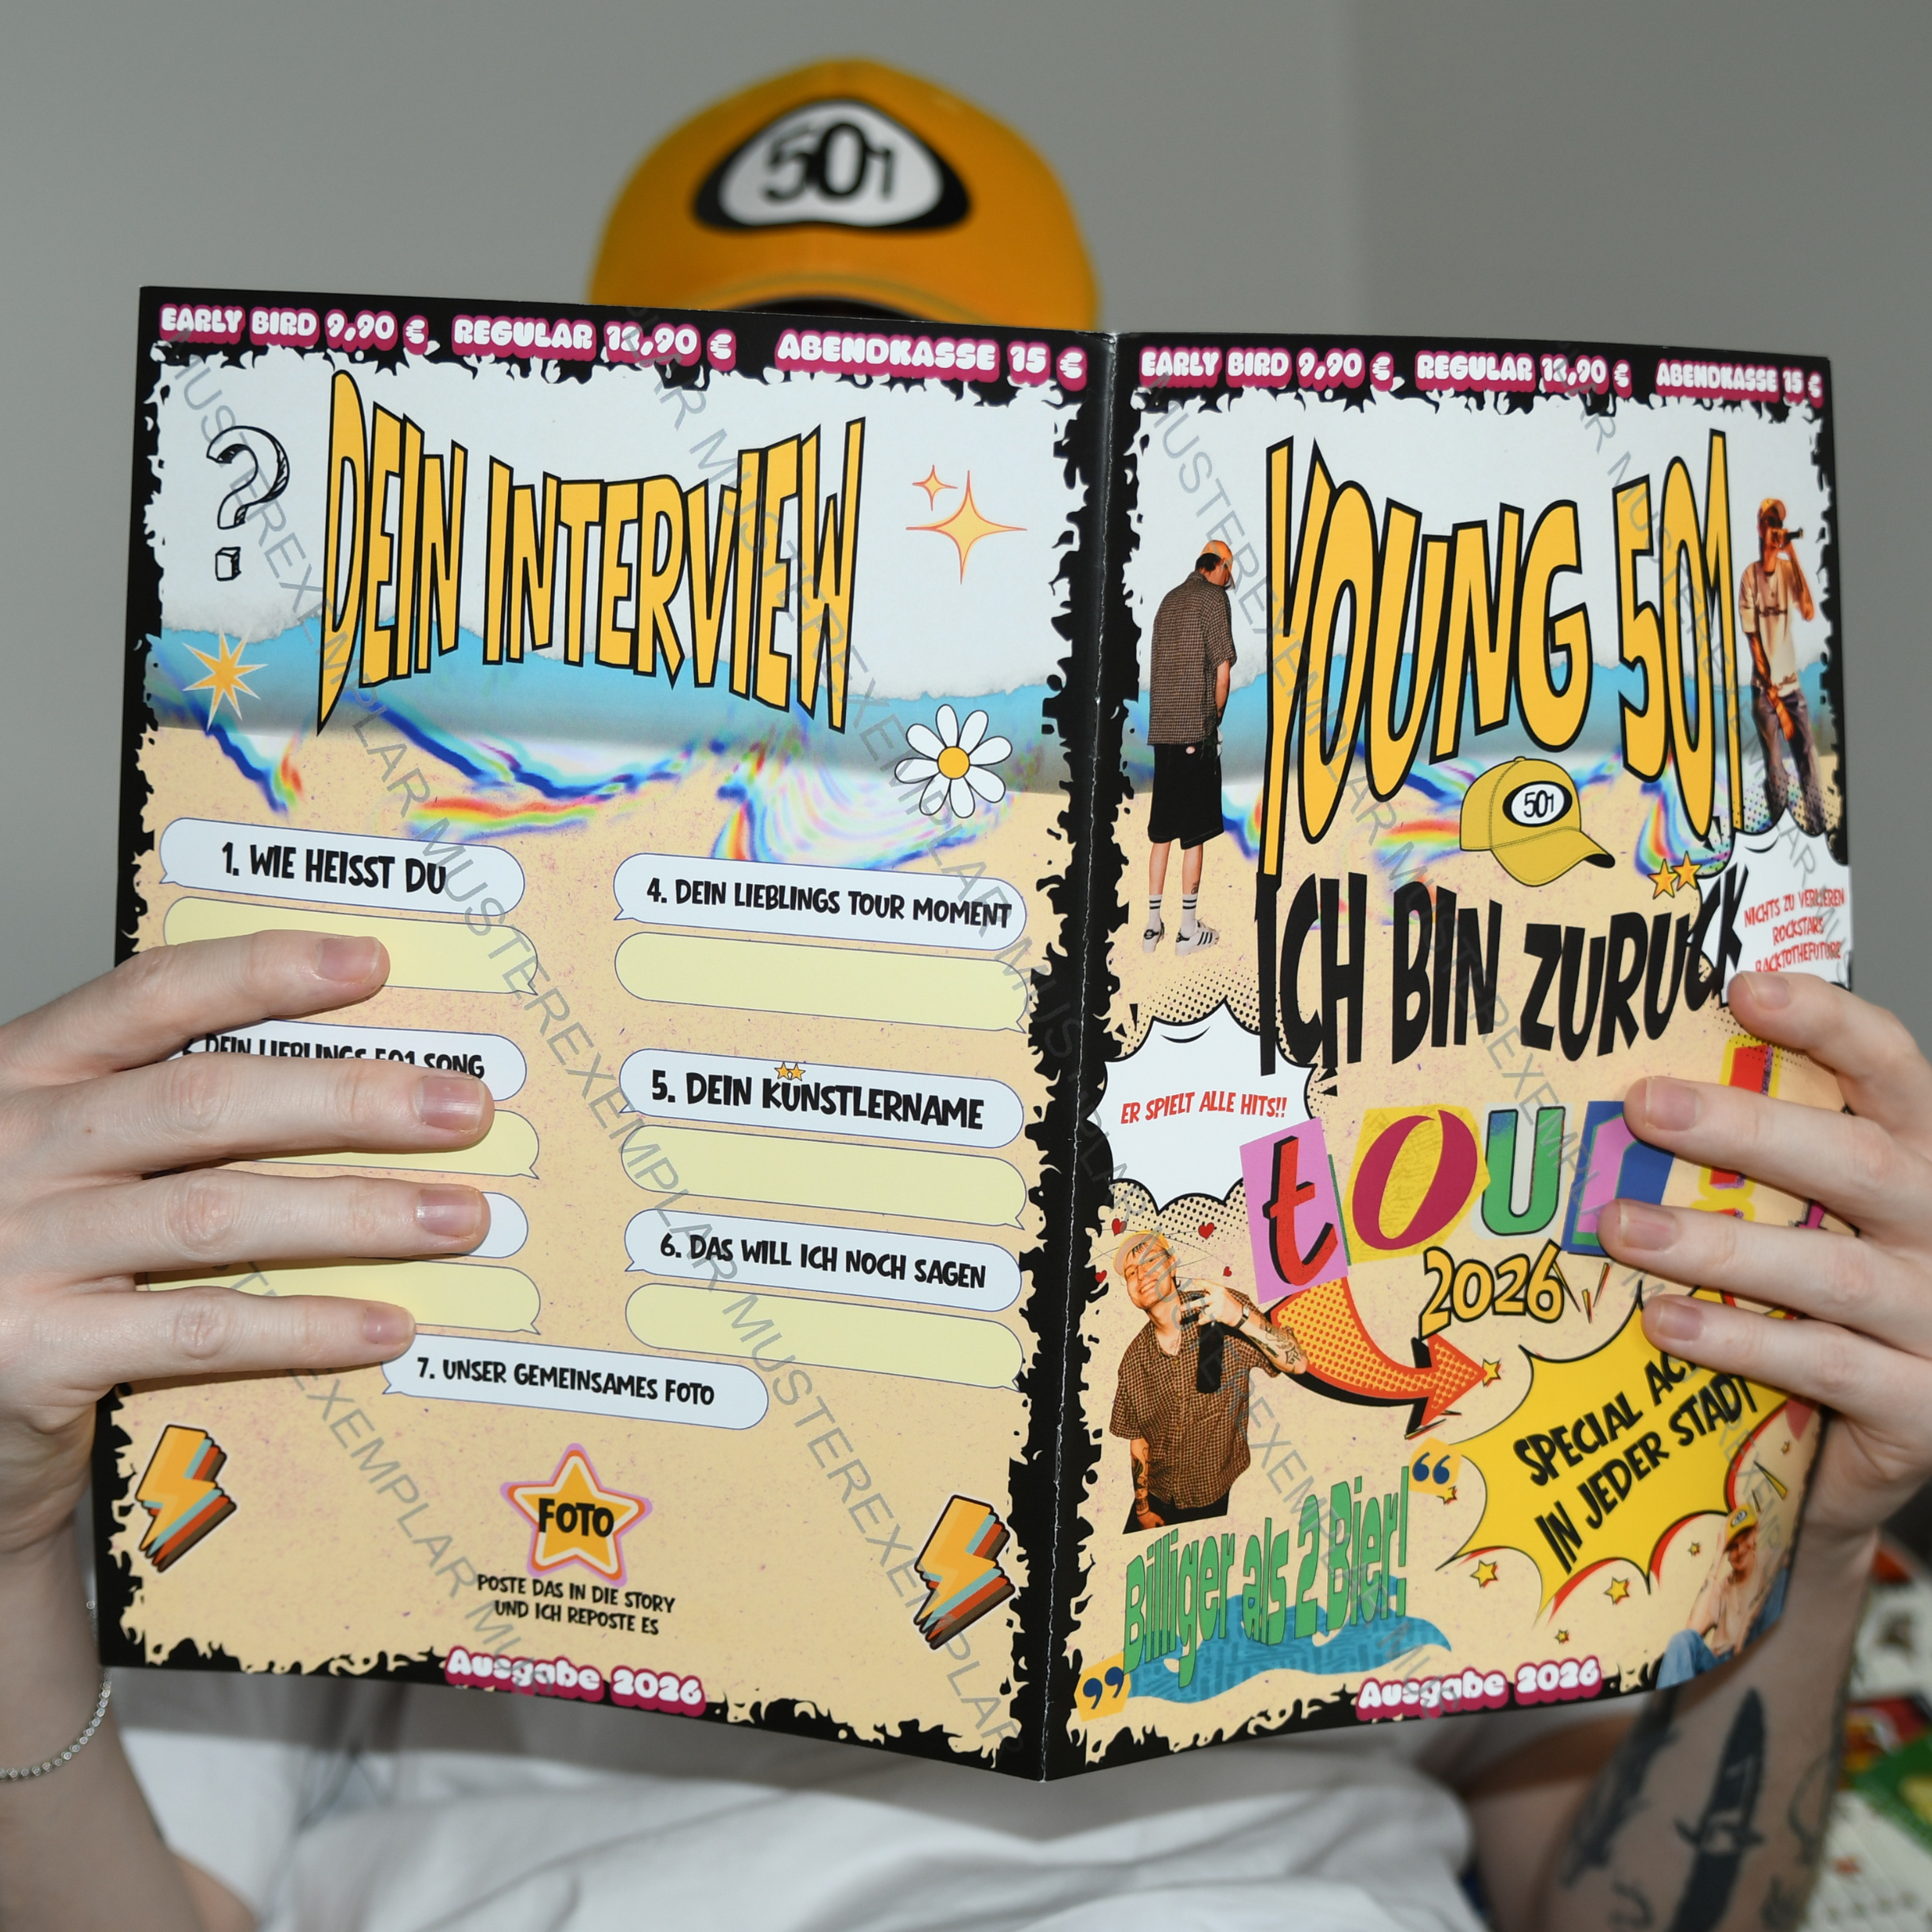 501
EARLY BIRD 9,90 €, REGULAR 12,90 € ABENDKASSE 15 €
?
DEIN INTERVIEW
1. WIE HEISST DU
DEIN LIEBLINGS 501 SONG
4. DEIN LIEBLINGS TOUR MOMENT
5. DEIN KÜNSTLERNAME
6. DAS WILL ICH NOCH SAGEN
7. UNSER GEMEINSAMES FOTO
FOTO
POSTE DAS IN DIE STORY
UND ICH REPOSTE ES
Ausgabe 2026
EARLY BIRD 9,90 €, REGULAR 12,90 € ABENDKASSE 15 €
YOUNG 501
501
ICH BIN ZURÜCK
NICHTS ZU VERLIEREN
ROCKSTARS
BACKTOTHEFUTURE
ER SPIELT ALLE HITS!!
tOUR!
2026
SPECIAL
IN JEDER STADT
„Billiger als 2 Bier!“
Ausgabe 2026
MUSTEREXEMPLAR MUSTEREXEMPLAR MUSTEREXEMPLAR